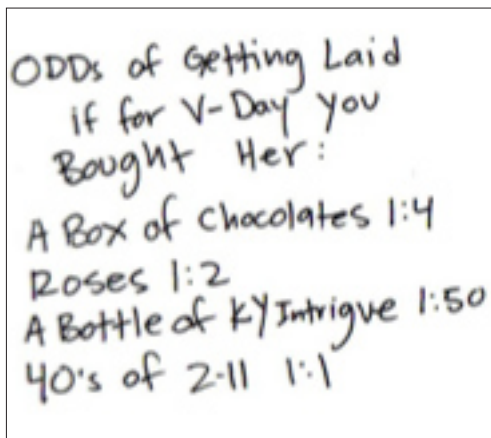 ODDs of Getting Laid
if for V-Day you
Bought Her:
A Box of Chocolates 1:4
Roses 1:2
A Bottle of KY Intrigue 1:50
40's of 2-11 1:1